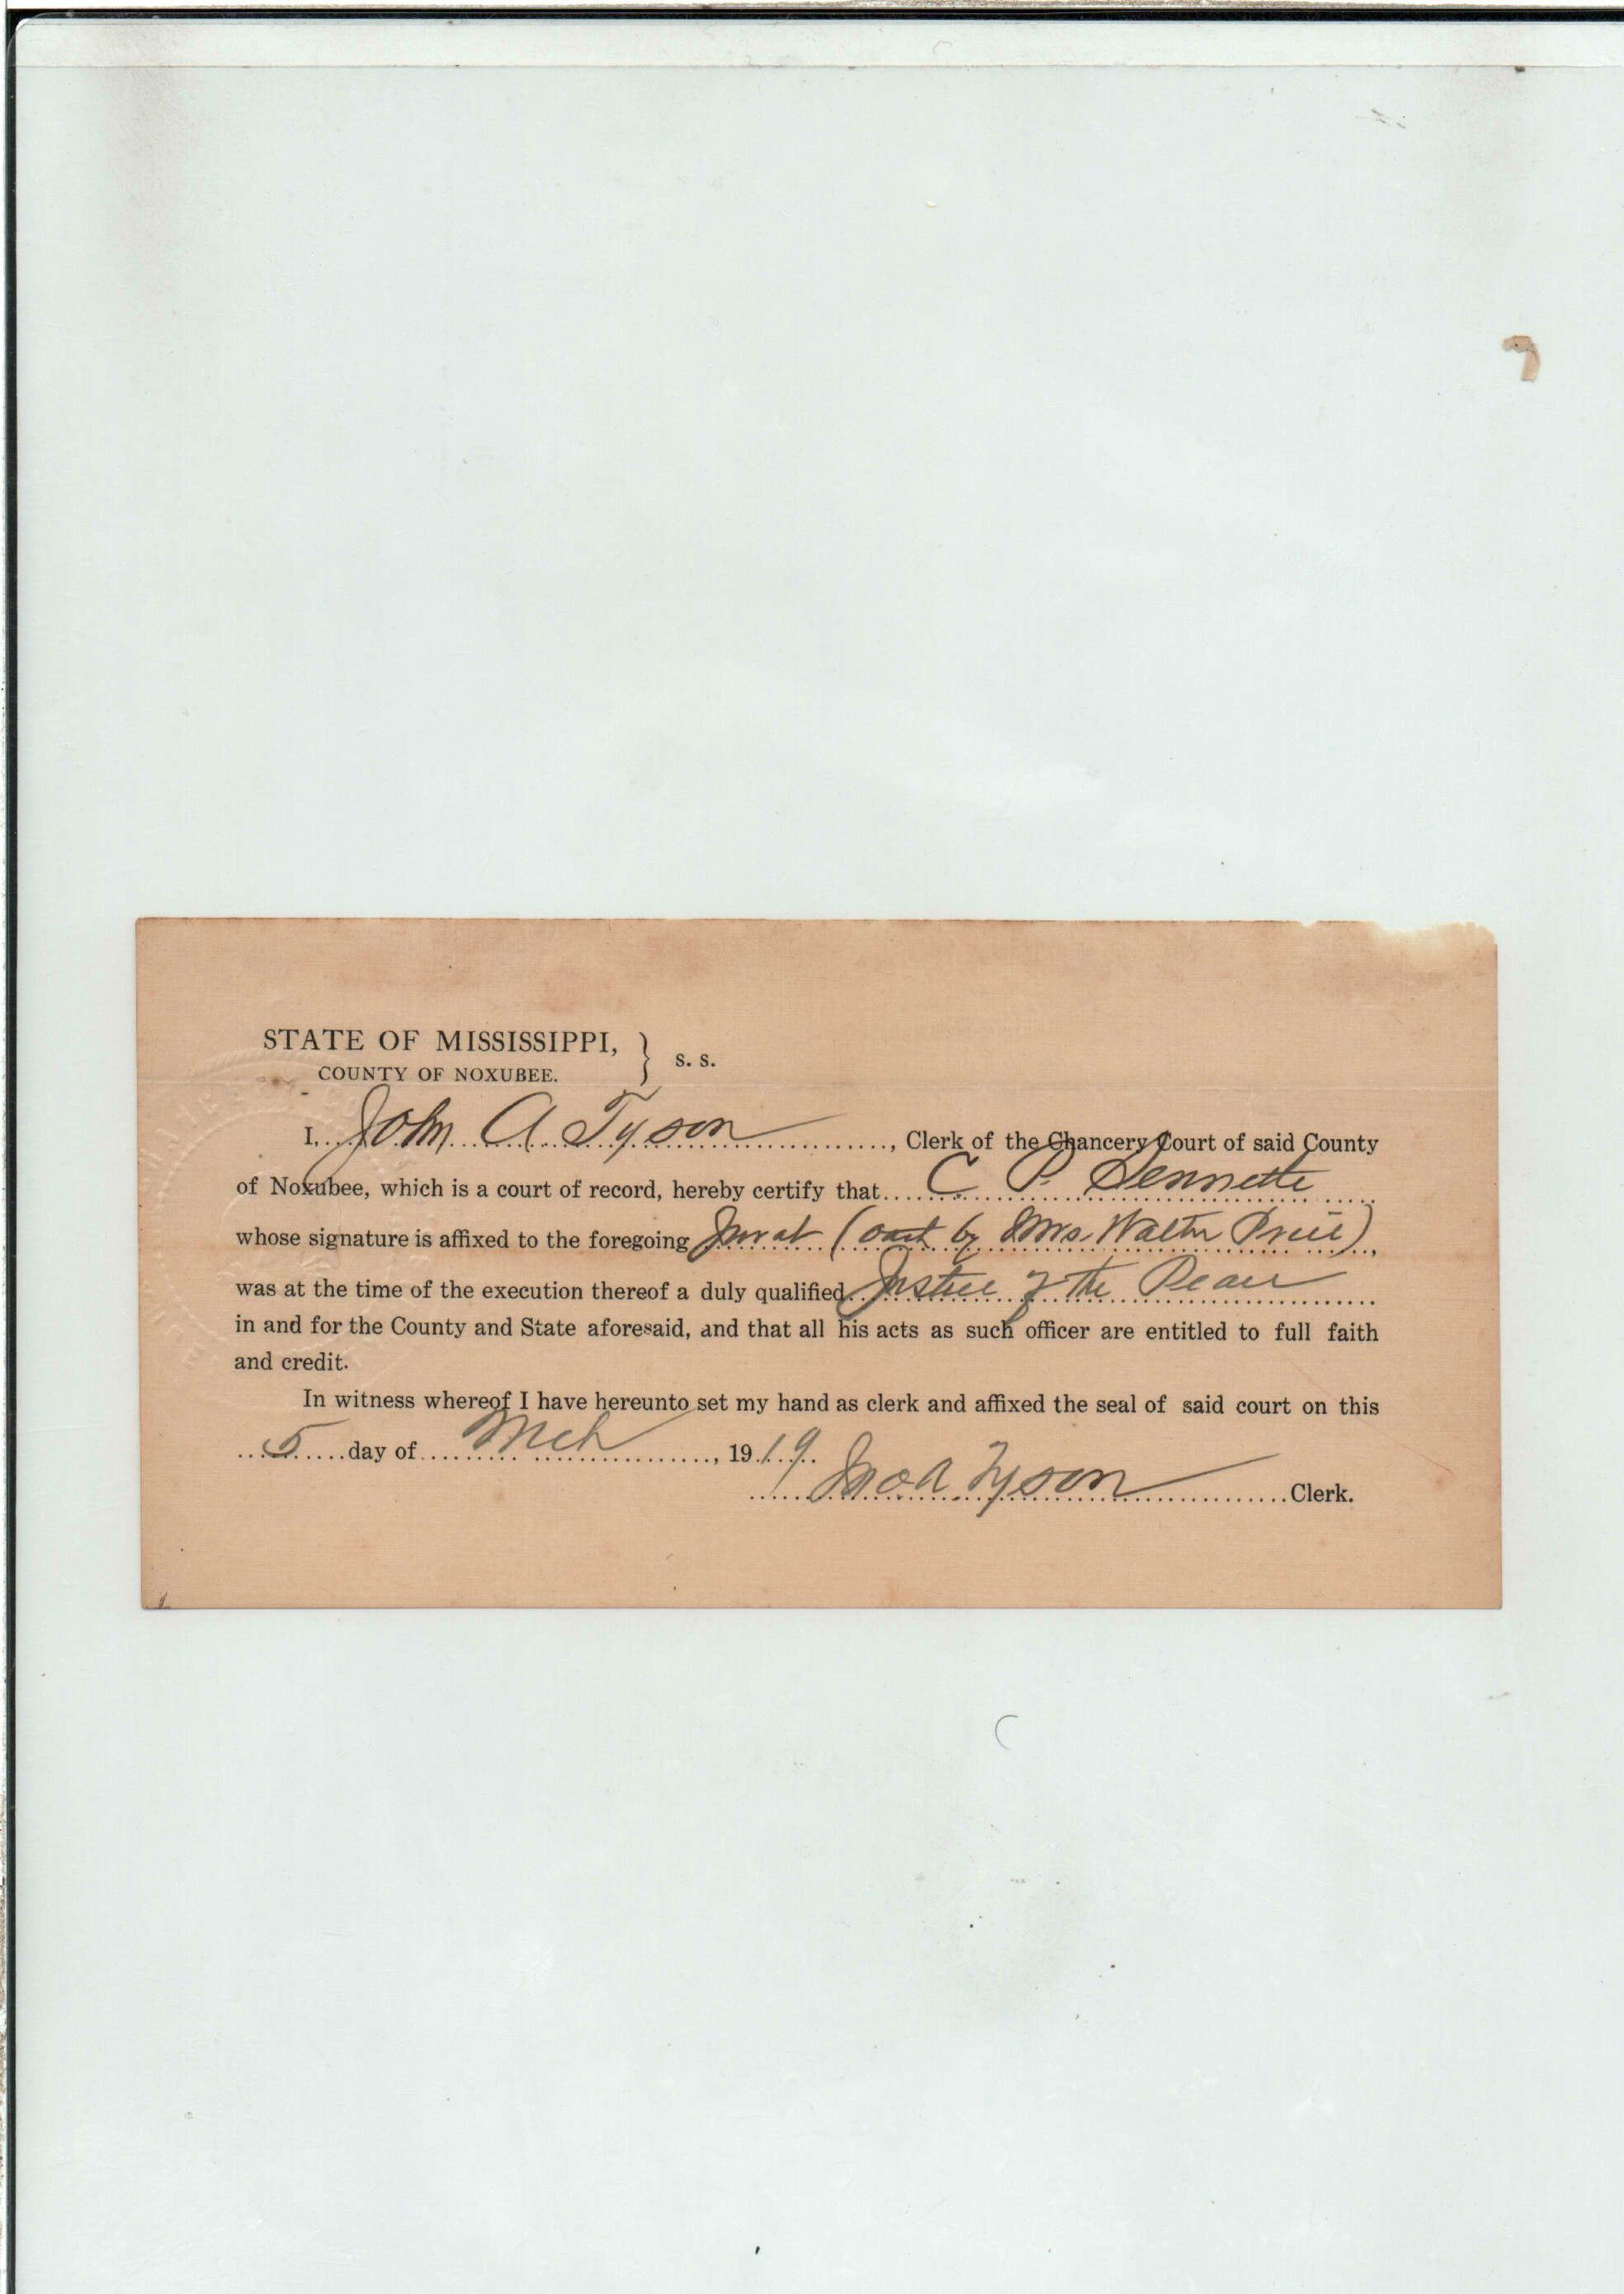 STATE OF MISSISSIPPI, } S. S.
COUNTY OF NOXUBEE.
I, John A Tyson, Clerk of the Chancery Court of said County
of Noxubee, which is a court of record, hereby certify that C. P. Dennette
whose signature is affixed to the foregoing Jurat (oath by Mrs. Walter Price),
was at the time of the execution thereof a duly qualified Justice of the Peace
in and for the County and State aforesaid, and that all his acts as such officer are entitled to full faith
and credit.
In witness whereof I have hereunto set my hand as clerk and affixed the seal of said court on this
5 day of Mch, 1919.
Jno A Tyson Clerk.